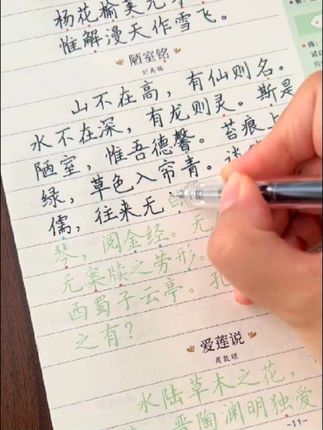 杨花榆荚无
惟解漫天作雪飞。
陋室铭
刘禹锡
山不在高，有仙则名。
水不在深，有龙则灵。斯是
陋室，惟吾德馨。苔痕上
绿，草色入帘青。谈
儒，往来无白
琴，阅金经。无
无案牍之劳形。
西蜀子云亭。孔
之有？
爱莲说
周敦颐
水陆草木之花，
晋陶渊明独爱
-11-